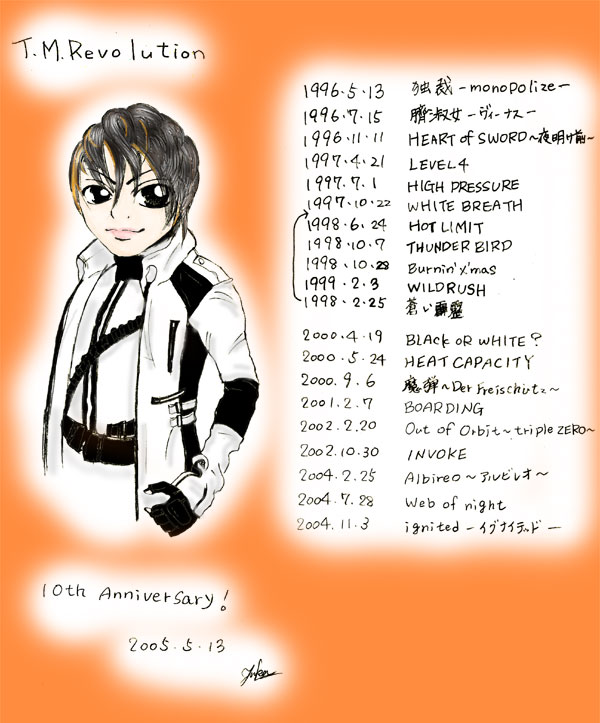 T.M.Revolution
1996.5.13 独裁 -monopolize-
1996.7.15 臍淑女 -ヴィーナス-
1996.11.11 HEART of SWORD~夜明け前~
1997.4.21 LEVEL 4
1997.7.1 HIGH PRESSURE
1997.10.22 WHITE BREATH
1998.6.24 HOT LIMIT
1998.10.7 THUNDER BIRD
1998.10.28 Burnin' X'mas
1999.2.3 WILD RUSH
1998.2.25 蒼い霹靂
2000.4.19 BLACK OR WHITE?
2000.5.24 HEAT CAPACITY
2000.9.6 魔弾~Der Freischütz~
2001.2.7 BOARDING
2002.2.20 Out of Orbit~triple ZERO~
2002.10.30 INVOKE
2004.2.25 Albireo~アルビレオ~
2004.7.28 Web of night
2004.11.3 ignited -イグナイテッド-
10th Anniversary!
2005.5.13